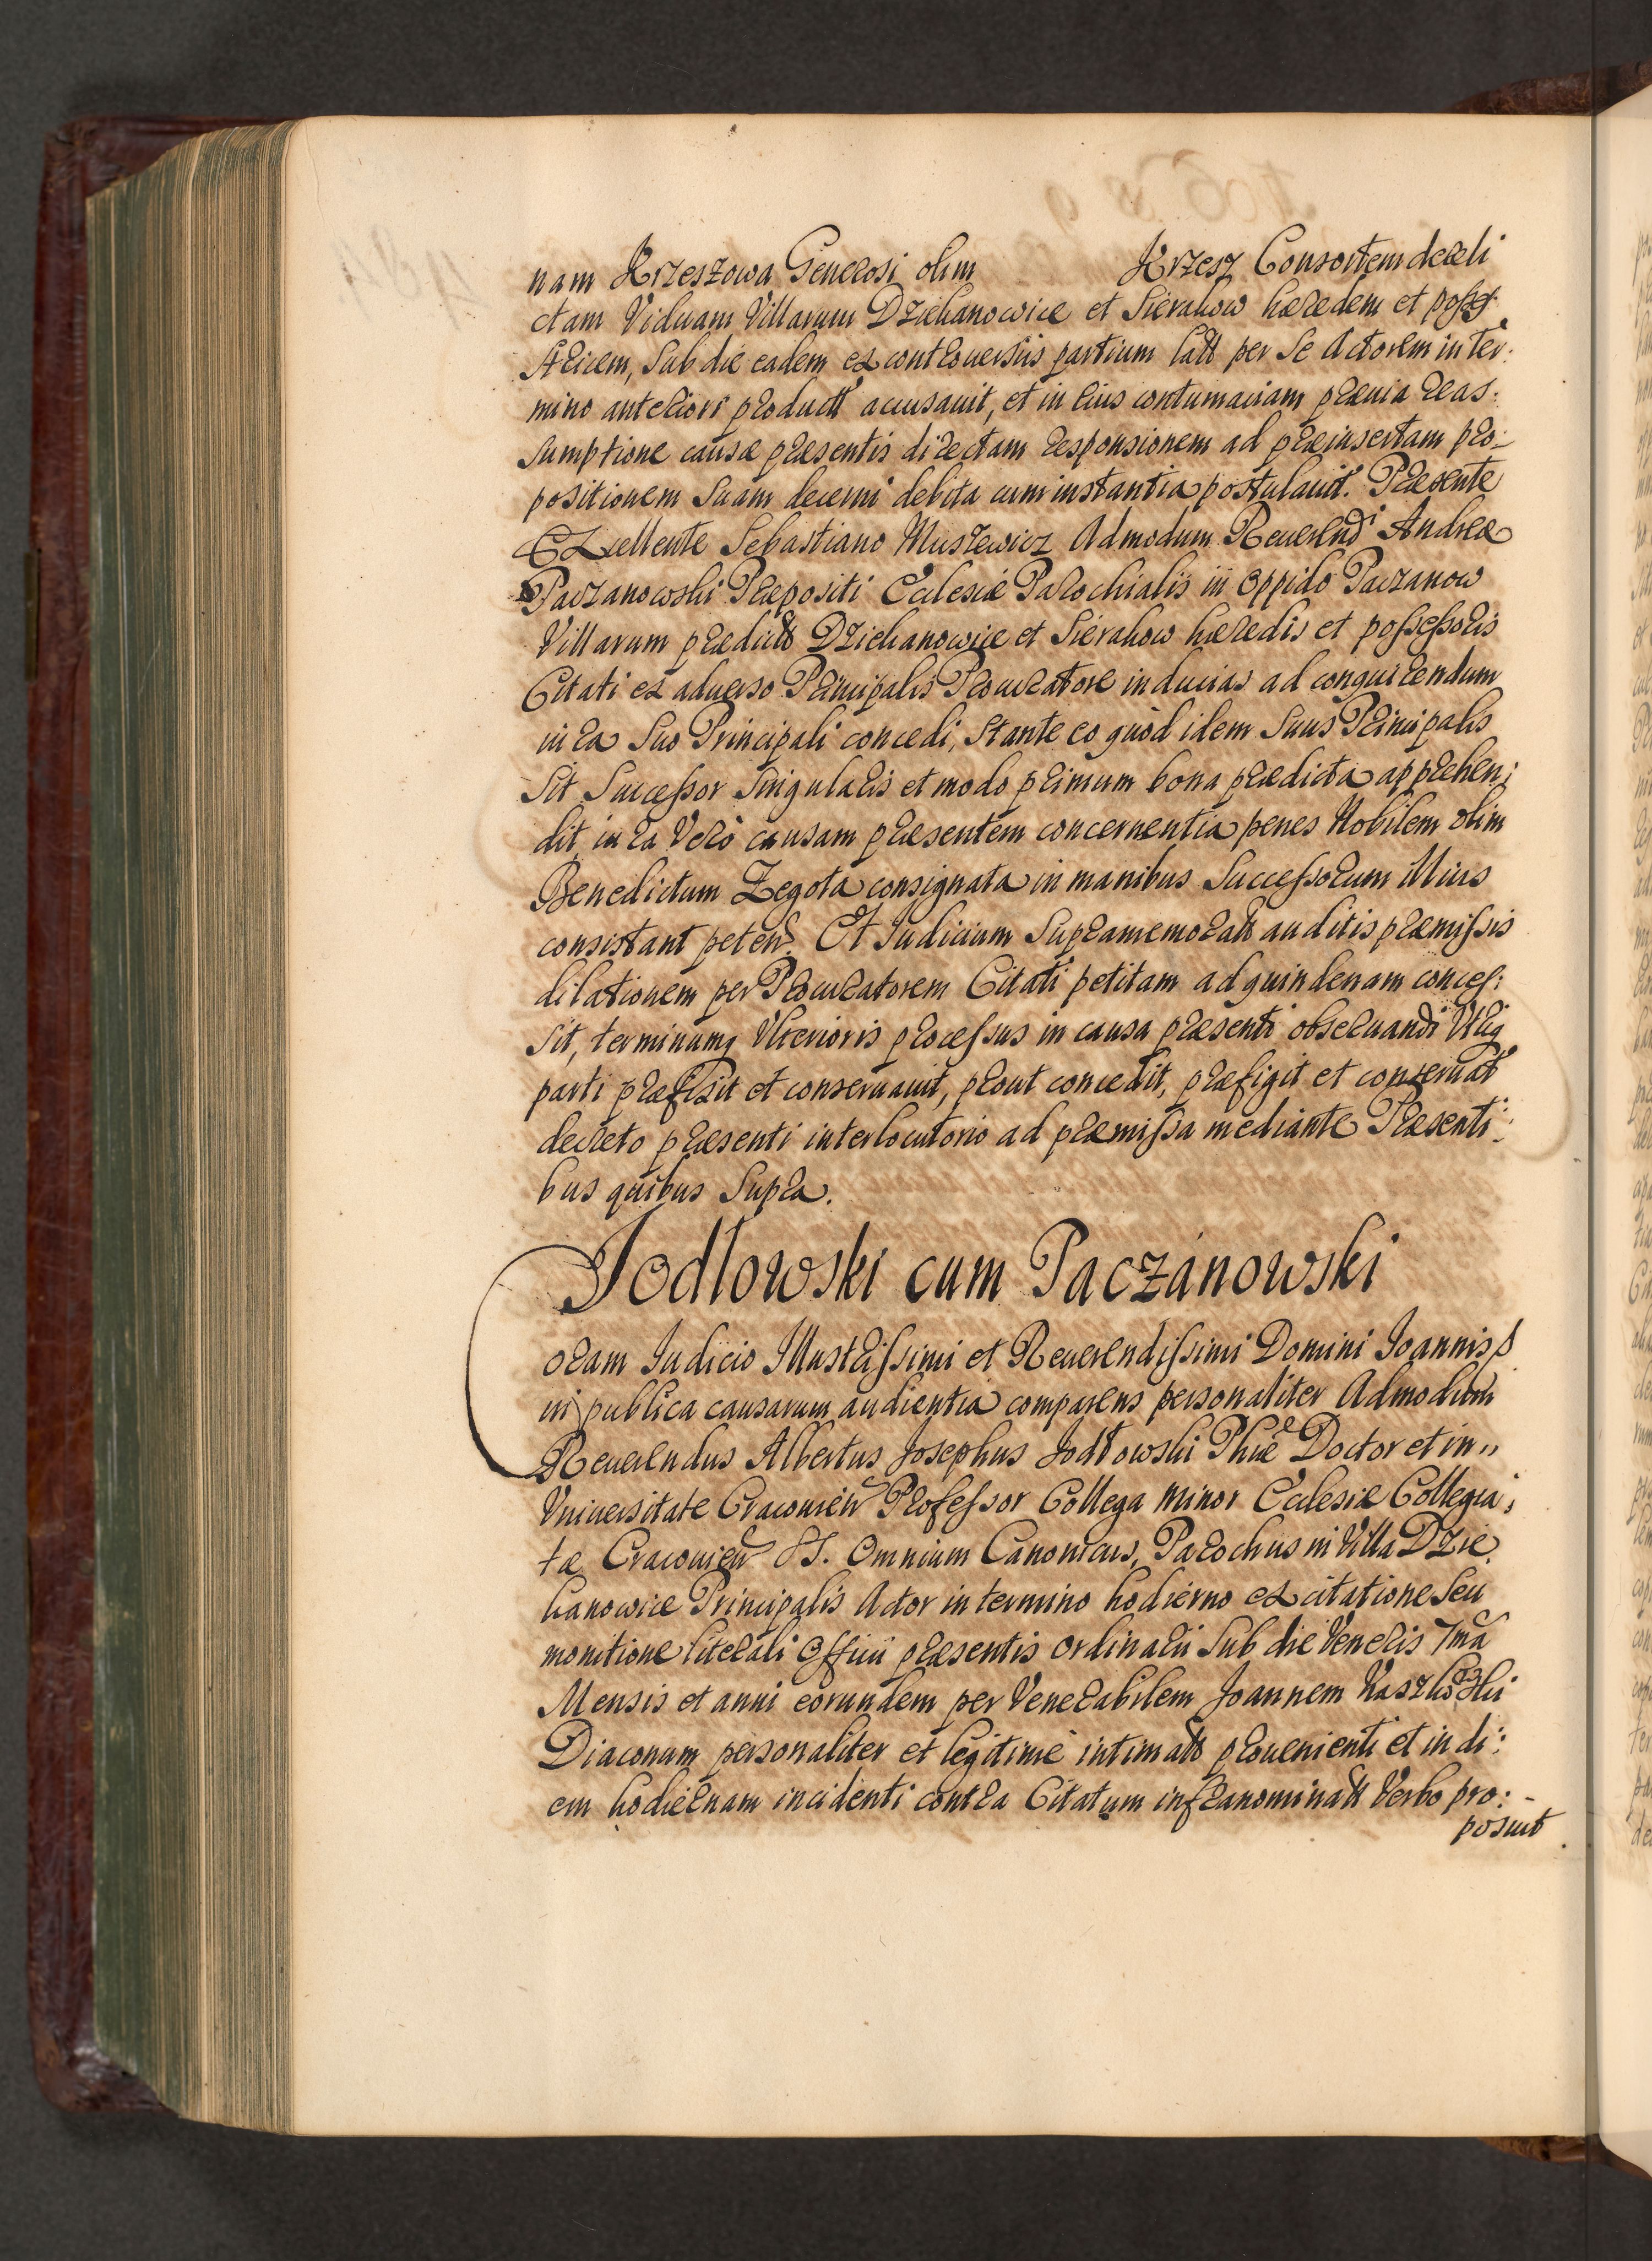 nam Krzeszowa Generosi olim Krzesz Consortem dereli
ctam Viduam Villarum Dziekanowice et Sierakow hæredem et posses
stricem, Sub die eadem ex controuersiis partium latt per Se Actorem in ter:
mino anteriori productt accusauit, et in Eius contumaciam præuia reas:
sumptione causæ præsentis directam responsionem ad præinsertam pro:
positionem Suam decerni debita cum instantia postulauit. Præsente
Excellente Sebastiano Muszewicz Admodum Reuerendi Andreæ
Paczanowski Præpositi Eclesiæ Parochialis in Oppido Paczanow
Villarum prædictt Dziekanowice et Sierakow hæredis et possessoris
Citati ex aduerso Principalis Procuratore inducias ad conquirendum
iura Suo Principali concedi, Stante eo quòd idem Suus Principalis
Sit Successor Singularis et modo primum bona prædicta apprehen:
dit iura Verò causam præsentem concernentia penes Nobilem olim
Benedictum Zegota consignata in manibus Successorum Illius
consistant peten. Et Judicium Supramemoratt auditis præmissis
dilationem per Procuratorem Citati petitam ad quindenam conces:
sit, terminumq Vlterioris processus in causa præsenti obseruandi Vtriq
parti præfixit et conseruauit, prout concedit, præfigit et conseruat
decreto præsenti interlocutorio ad præmissa mediante Præsenti:
bus quibus Supra.
Jodłowski cum Paczánowski
Coram Judicio Illustrissimi et Reuerendissimi Domini Joannis
in publica causarum audientia comparens personaliter Admodum
Reuerendus Albertus Josephus Jodłowski Phiæ Doctor et in
Vniuersitate Cracouien Professor Collega Minor Eclesiæ Collegia:
tæ Cracouien SS. Omnium Canonicus, Parochus in Villa Dzie
kanowice Principalis Actor in termino hodierno ex citatione Seu
monitione literali Officii præsentis Ordinarii Sub die Veneris 7ma
Mensis et anni eorundem per Venerabilem Joannem
Diaconum personaliter et legitimè intimatt prouenienti et in di:
em hodiernam incidenti contra Citatum infranominatt Verbo pro:
posuit